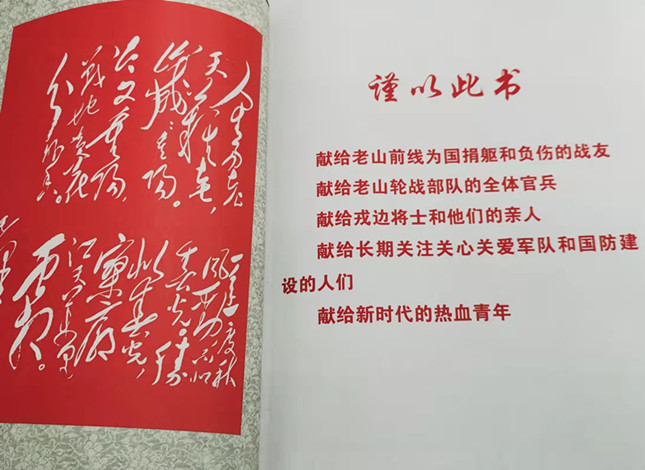 人生易老
天难老，
岁岁重阳。
今又重阳，
战地黄花
分外香。
一年一度秋
风劲，不似
春光。胜
似春光，
寥廓
江天万里
霜。
谨以此书
献给老山前线为国捐躯和负伤的战友
献给老山轮战部队的全体官兵
献给戎边将士和他们的亲人
献给长期关注关心关爱军队和国防建
设的人们
献给新时代的热血青年